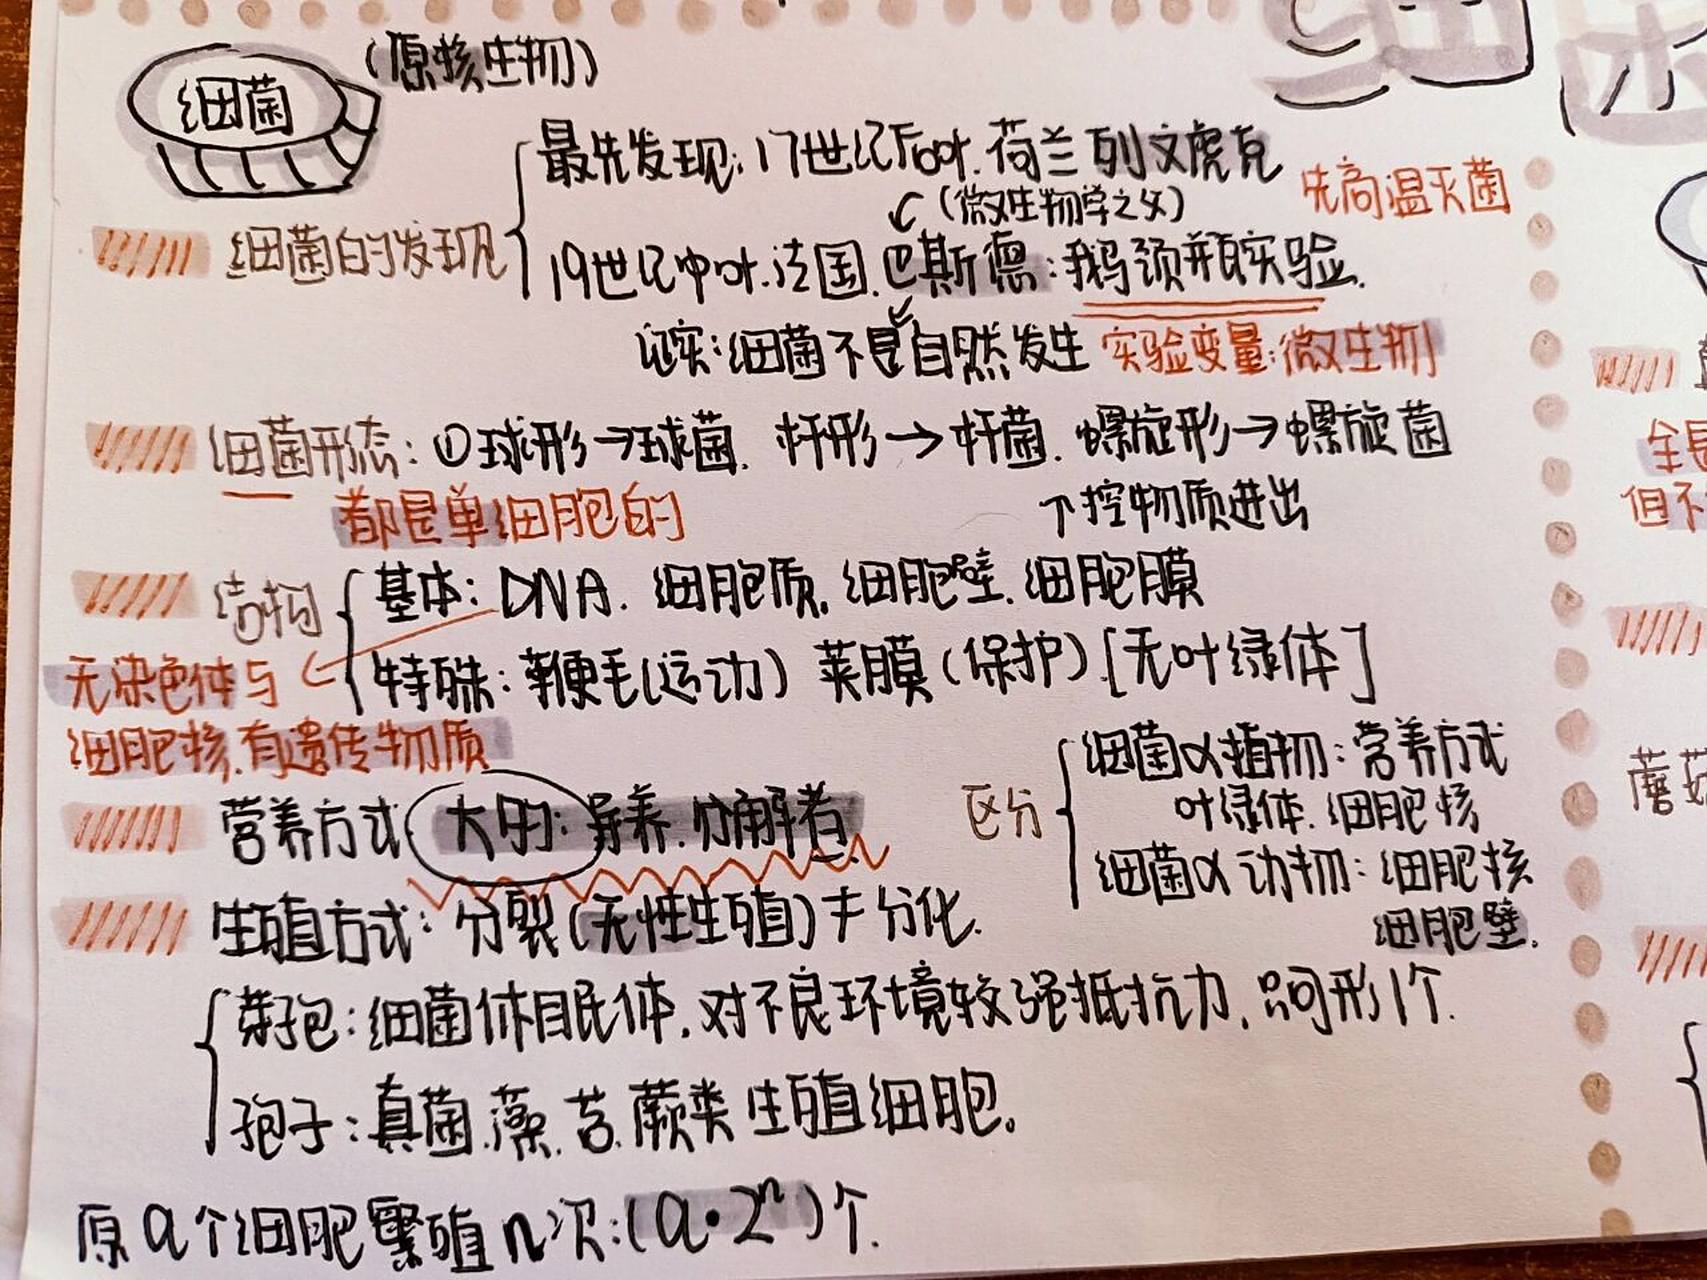 (原核生物)
细菌
最先发现:17世纪后叶.荷兰列文虎克
(微生物学之父)
先高温灭菌
细菌的发现
19世纪中叶.法国.巴斯德:鹅颈瓶实验.
证实:细菌不是自然发生 实验变量:微生物
细菌形态:①球形→球菌. 杆形→杆菌. 螺旋形→螺旋菌
都是单细胞的
↑控物质进出
结构
基本:DNA.细胞质.细胞壁.细胞膜
特殊:鞭毛(运动) 荚膜(保护).[无叶绿体]
无染色体与
细胞核.有遗传物质
营养方式 大多:异养.分解者.
区分
细菌α植物:营养方式
叶绿体.细胞核
细菌α动物:细胞核
细胞壁.
生殖方式:分裂(无性生殖)≠分化.
芽孢:细菌休眠体,对不良环境较强抵抗力,只可形1个.
孢子:真菌.藻.苔.蕨类生殖细胞。
原a个细胞繁殖n次:(a·2ⁿ)个.
全是
但不
蘑菇